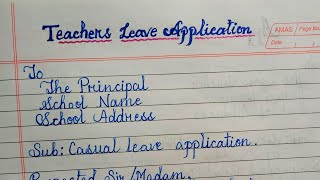 Teachers Leave Application
NAMS
Page No.
Date
To
The Principal
School Name
School Address
Sub: Casual leave application.
Respected Sir/Madam,